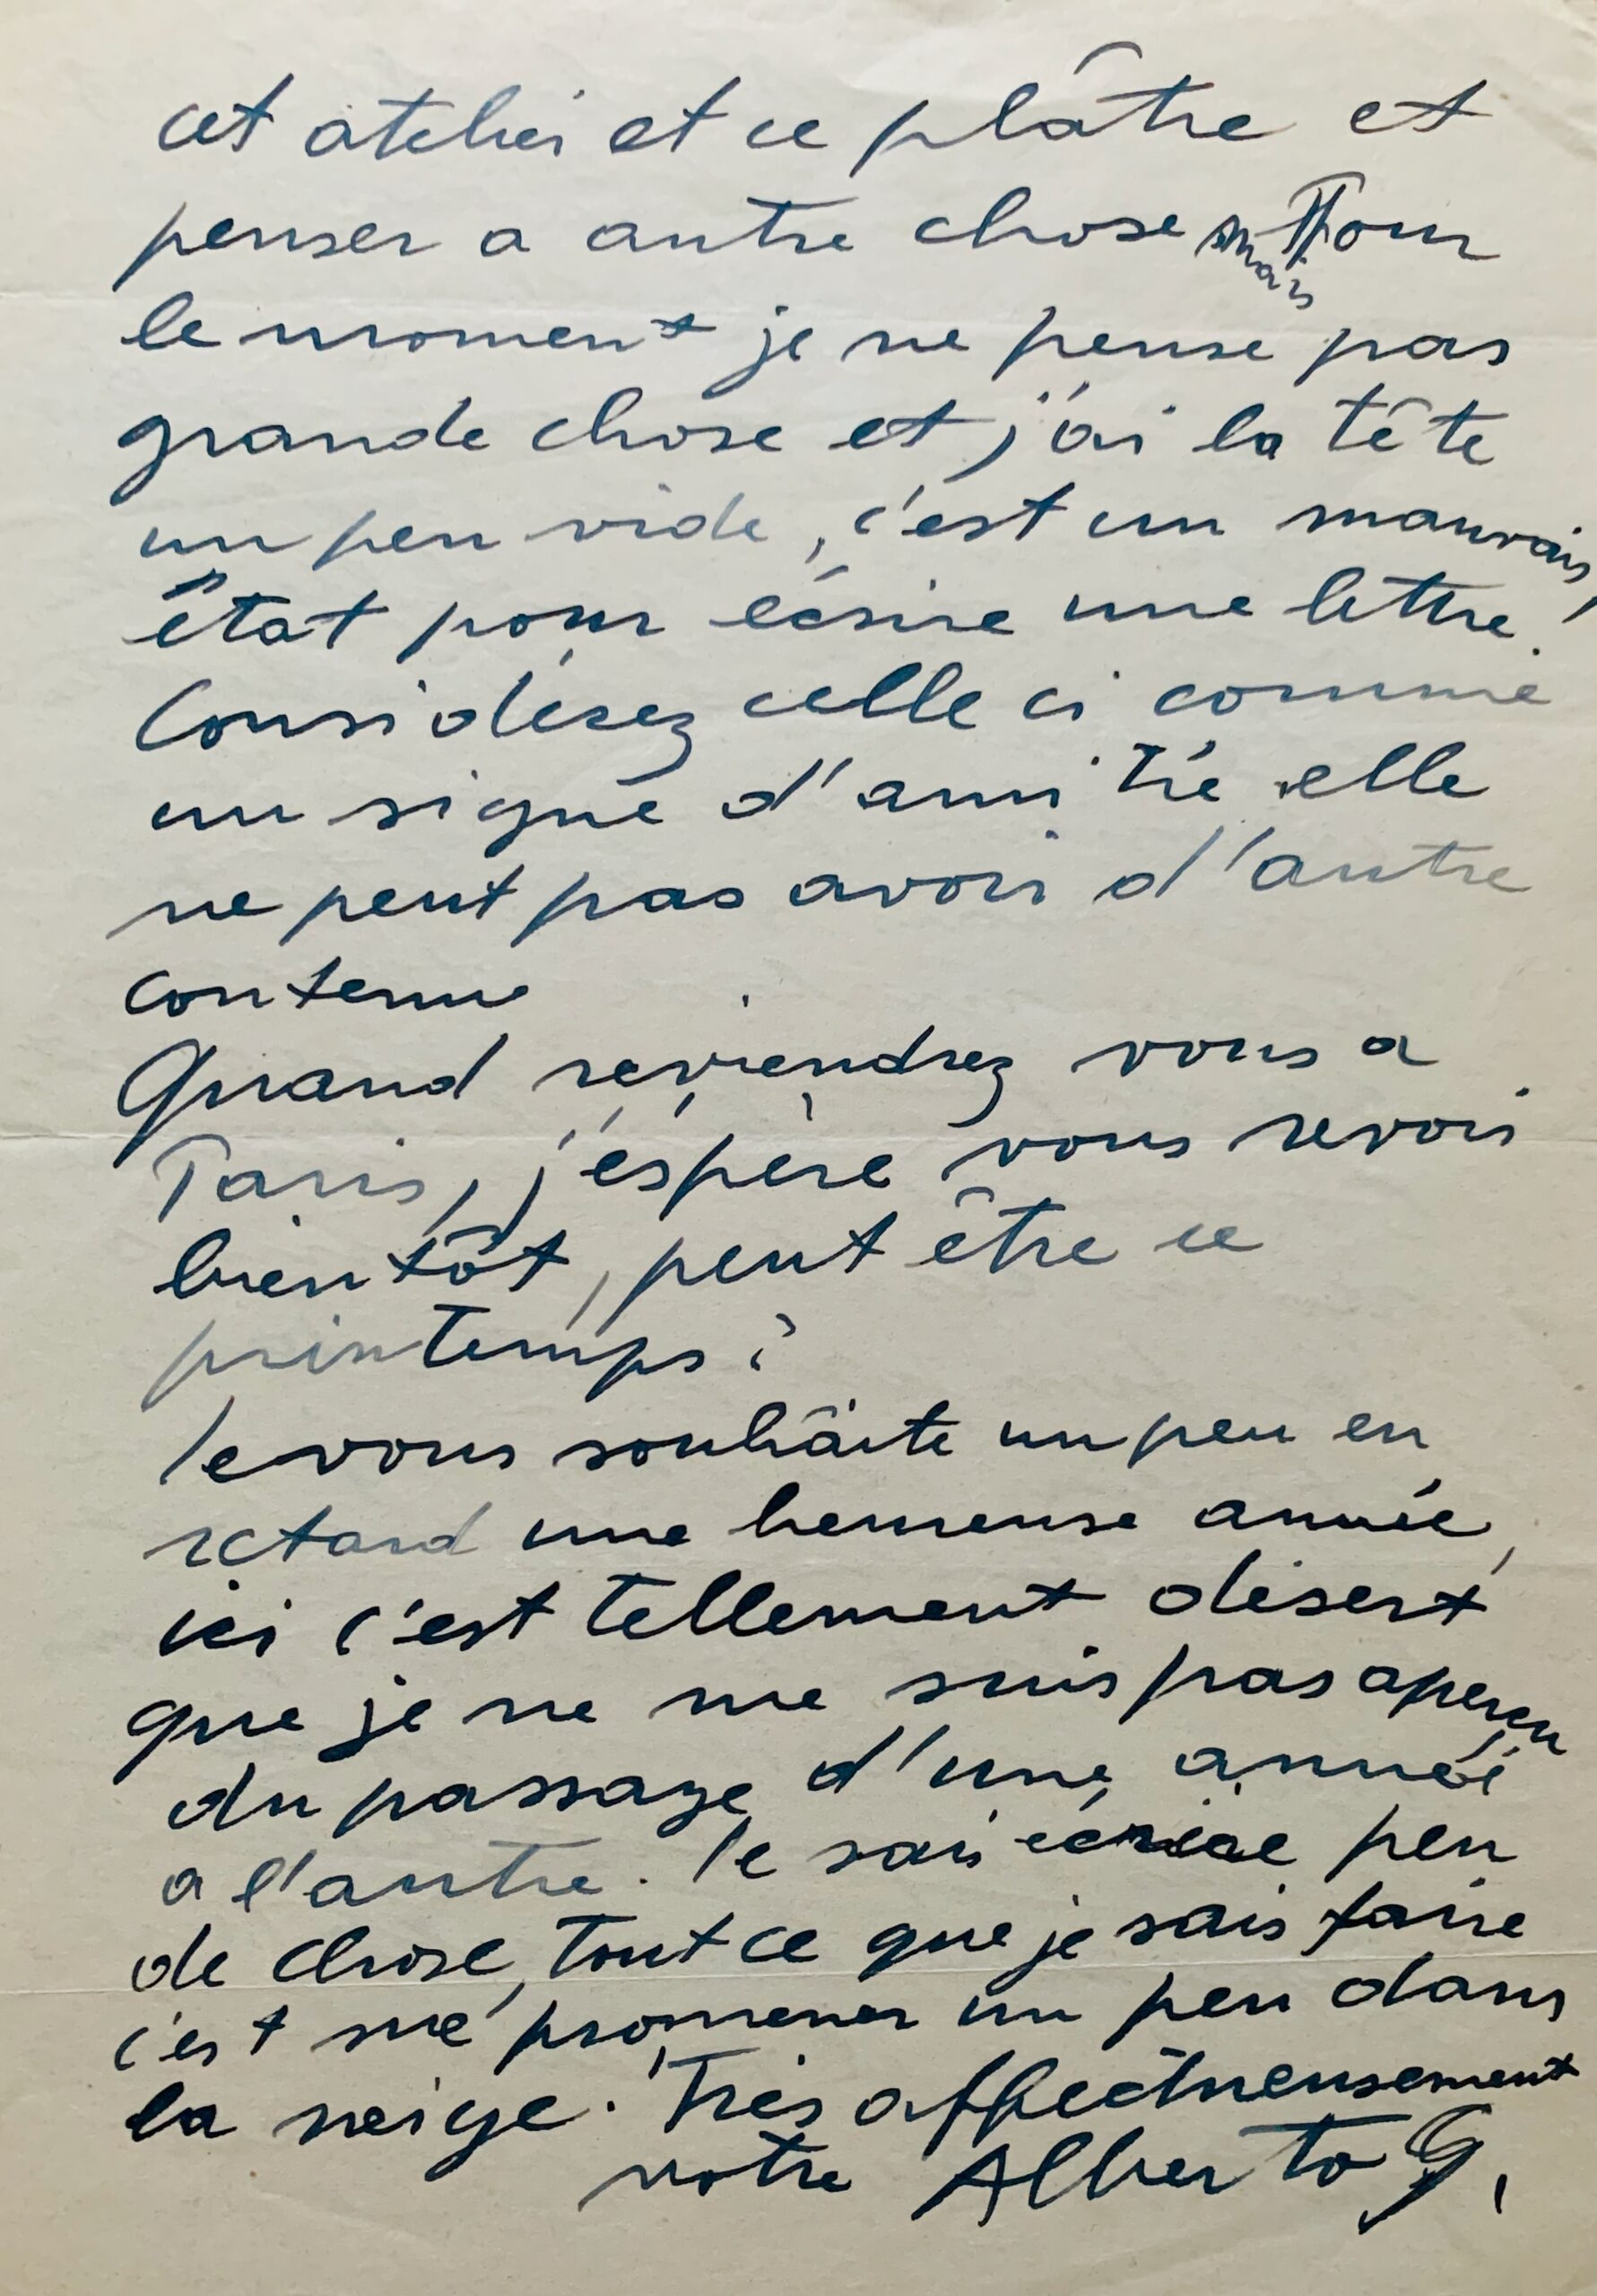 cet atelier et ce plâtre et
penser a autre chose mais Pour
le moment je ne pense pas
grande chose et j'ai la tête
un peu vide, c'est un mauvais
état pour écrire une lettre.
Considérez celle ci comme
un signe d'amitié elle
ne peut pas avoir d'autre
contenue
Quand reviendrez vous a
Paris, j'éspère vous revoir
bientôt, peut être ce
printemps?
Je vous souhâite un peu en
retard une heureuse année,
ici c'est tellement désert
que je ne me suis pas aperçu
du passage d'une année
a l'autre. Je sais écrire peu
de chose, tout ce que je sais faire
c'est me promener un peu dans
la neige. Très affectueusement
votre Alberto G.